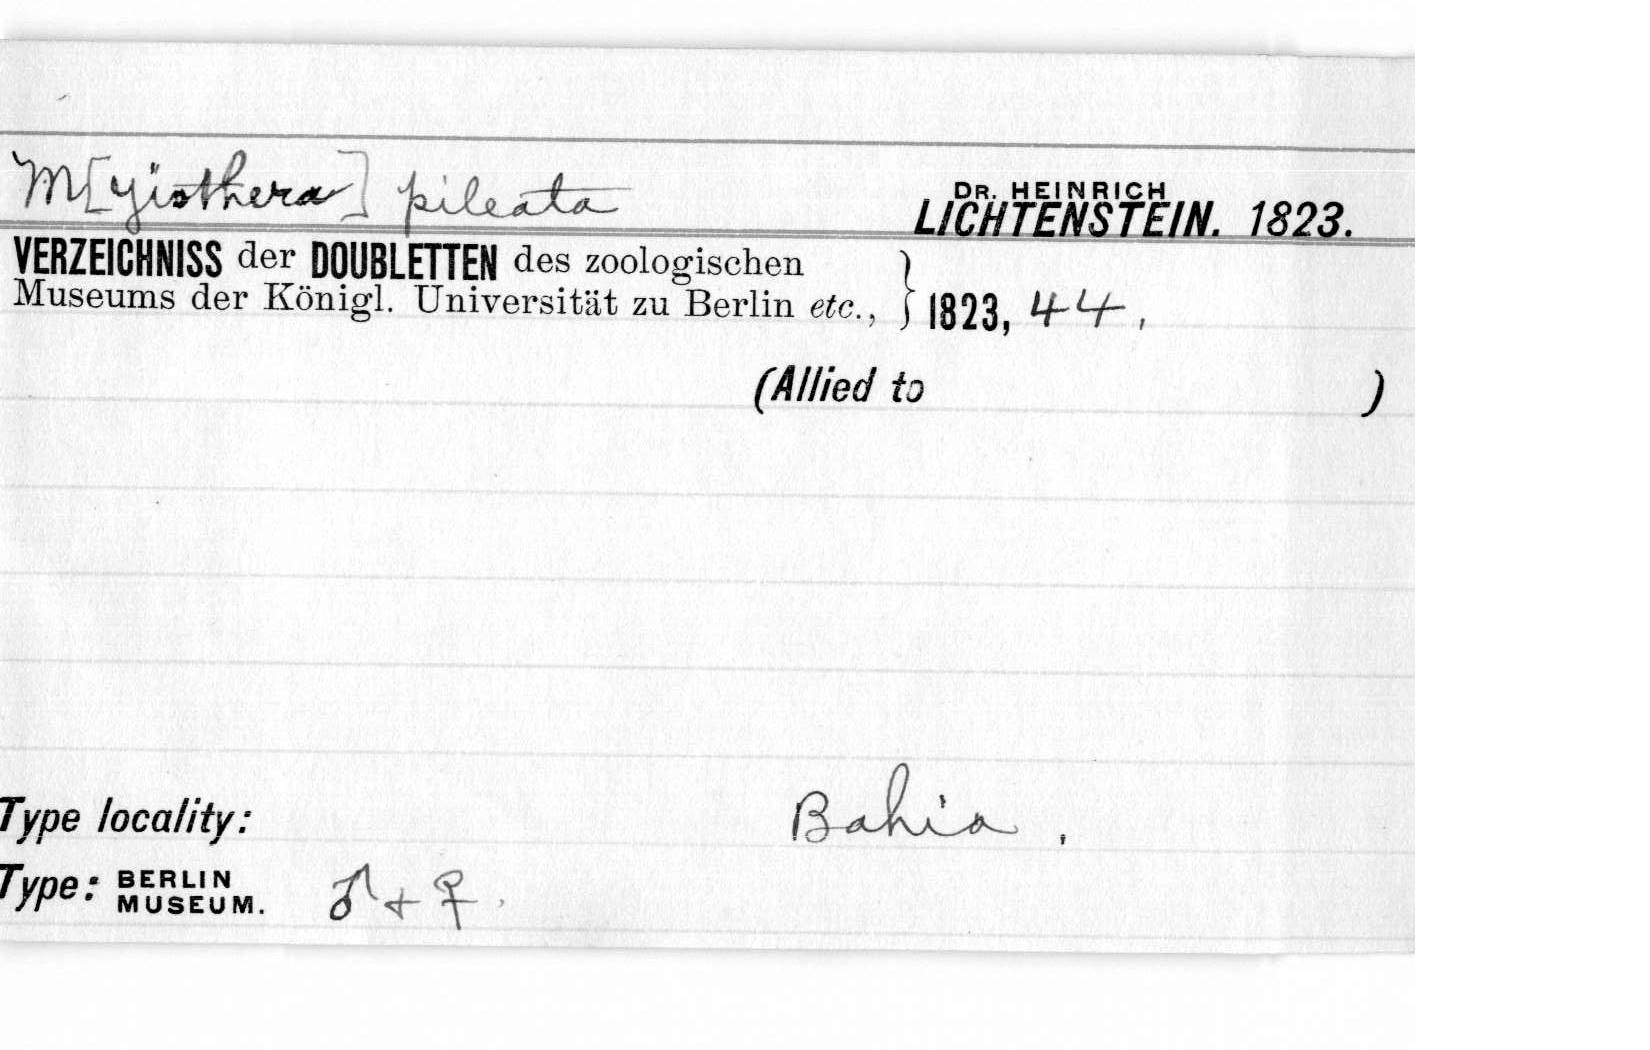 M[yiothera] pileata
DR. HEINRICH
LICHTENSTEIN. 1823.
VERZEICHNISS der DOUBLETTEN des zoologischen
Museums der Königl. Universität zu Berlin etc., } 1823, 44,
(Allied to )
Type locality: Bahia,
Type: BERLIN MUSEUM. ♂ + ♀.